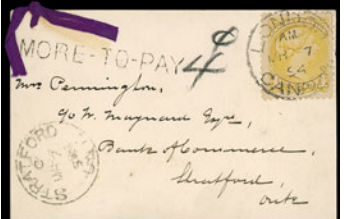 MORE-TO-PAY
4¢
LONDON
AM
MR 7
CANADA
Mrs Pennington,
c/o W. Maynard Esqr,
Bank of Commerce,
Stratford,
Ont
STRATFORD